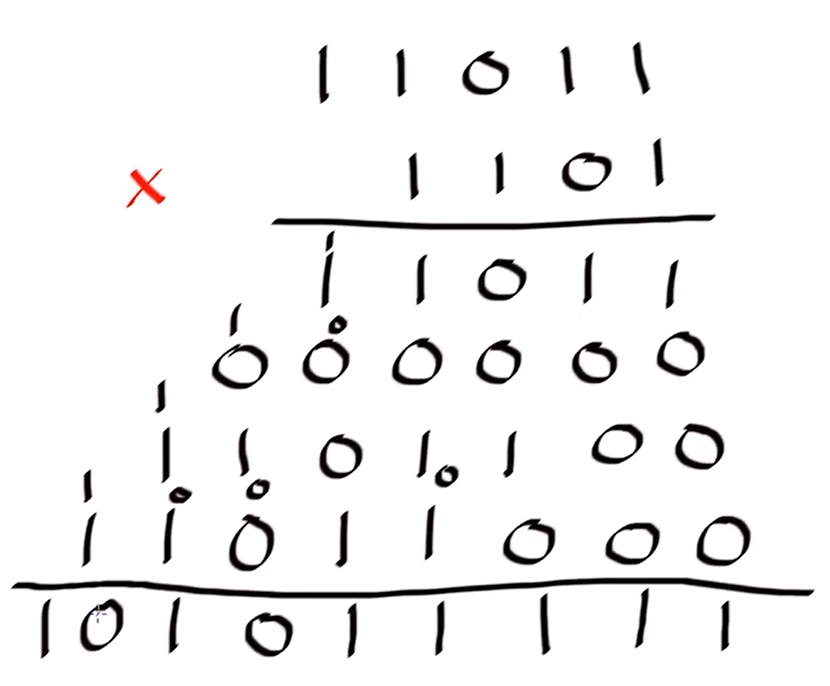 1 1 0 1 1
× 1 1 0 1
1 1 0 1 1
0 0 0 0 0 0
1 1 0 1 1 0 0
1 1 0 1 1 0 0 0
1 0 1 0 1 1 1 1 1